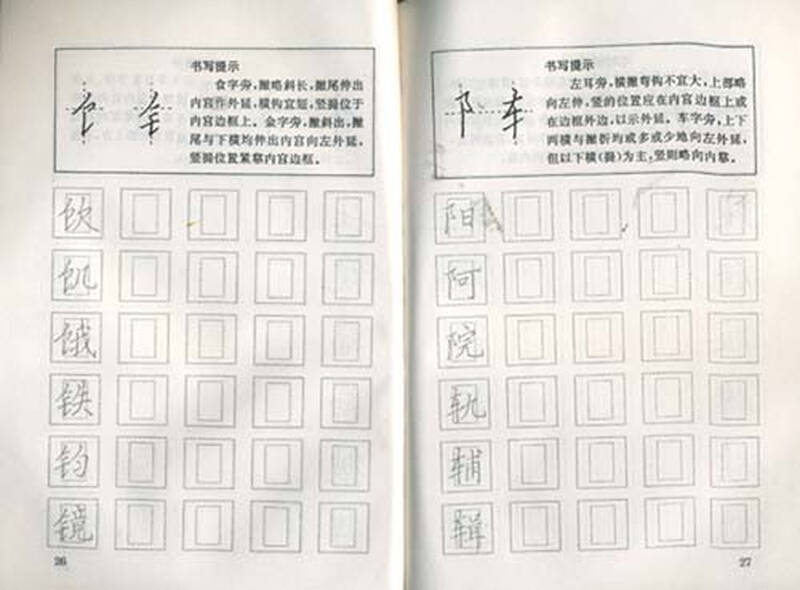 书写提示
食字旁,撇略斜长,撇尾伸出
内宫作外延,横钩宜短,竖提位于
内宫边框上。金字旁,撇斜出,撇
尾与下横均伸出内宫向左外延,
竖提位置紧靠内宫边框。
饮
饥
饿
铁
钧
镜
26
书写提示
左耳旁,横撇弯钩不宜大,上部略
向左伸,竖的位置应在内宫边框上或
在边框外边,以示外延。车字旁,上下
两横与撇折均或多或少地向左外延,
但以下横(提)为主,竖则略向内靠。
阳
阿
院
轨
辅
辑
27